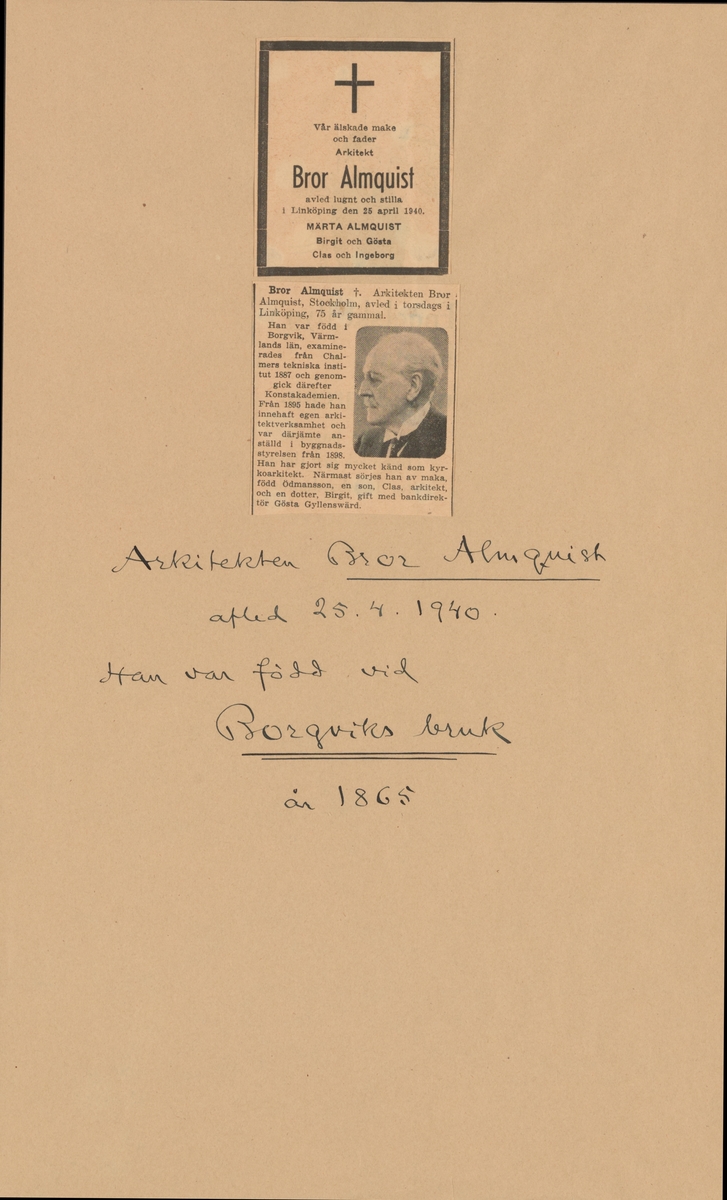 Vår älskade make
och fader
Arkitekt
Bror Almquist
avled lugnt och stilla
i Linköping den 25 april 1940.
MÄRTA ALMQUIST
Birgit och Gösta
Clas och Ingeborg
Bror Almquist †. Arkitekten Bror
Almquist, Stockholm, avled i torsdags i
Linköping, 75 år gammal.
Han var född i
Borgvik, Värm-
lands län, examine-
rades från Chal-
mers tekniska insti-
tut 1887 och genom-
gick därefter
Konstakademien.
Från 1895 hade han
innehaft egen arki-
tektverksamhet och
var därjämte an-
ställd i byggnads-
styrelsen från 1898.
Han har gjort sig mycket känd som kyr-
koarkitekt. Närmast sörjes han av maka,
född Ödmansson, en son, Clas, arkitekt,
och en dotter, Birgit, gift med bankdirek-
tör Gösta Gyllenswärd.
Arkitekten Bror Almquist
afled 25.4.1940.
Han var född vid
Borgviks bruk
år 1865